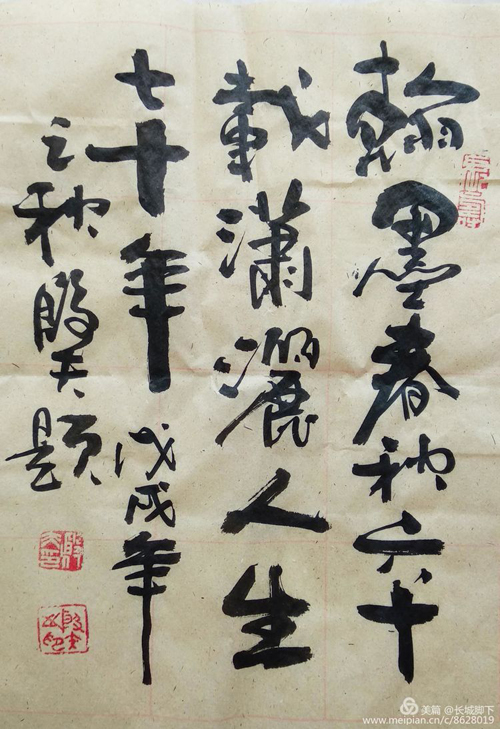 翰墨春秋六十
載瀟灑人生
七十年戊戌年
之秋殿天題
美篇 @长城脚下
www.meipian.cn/c/8628019